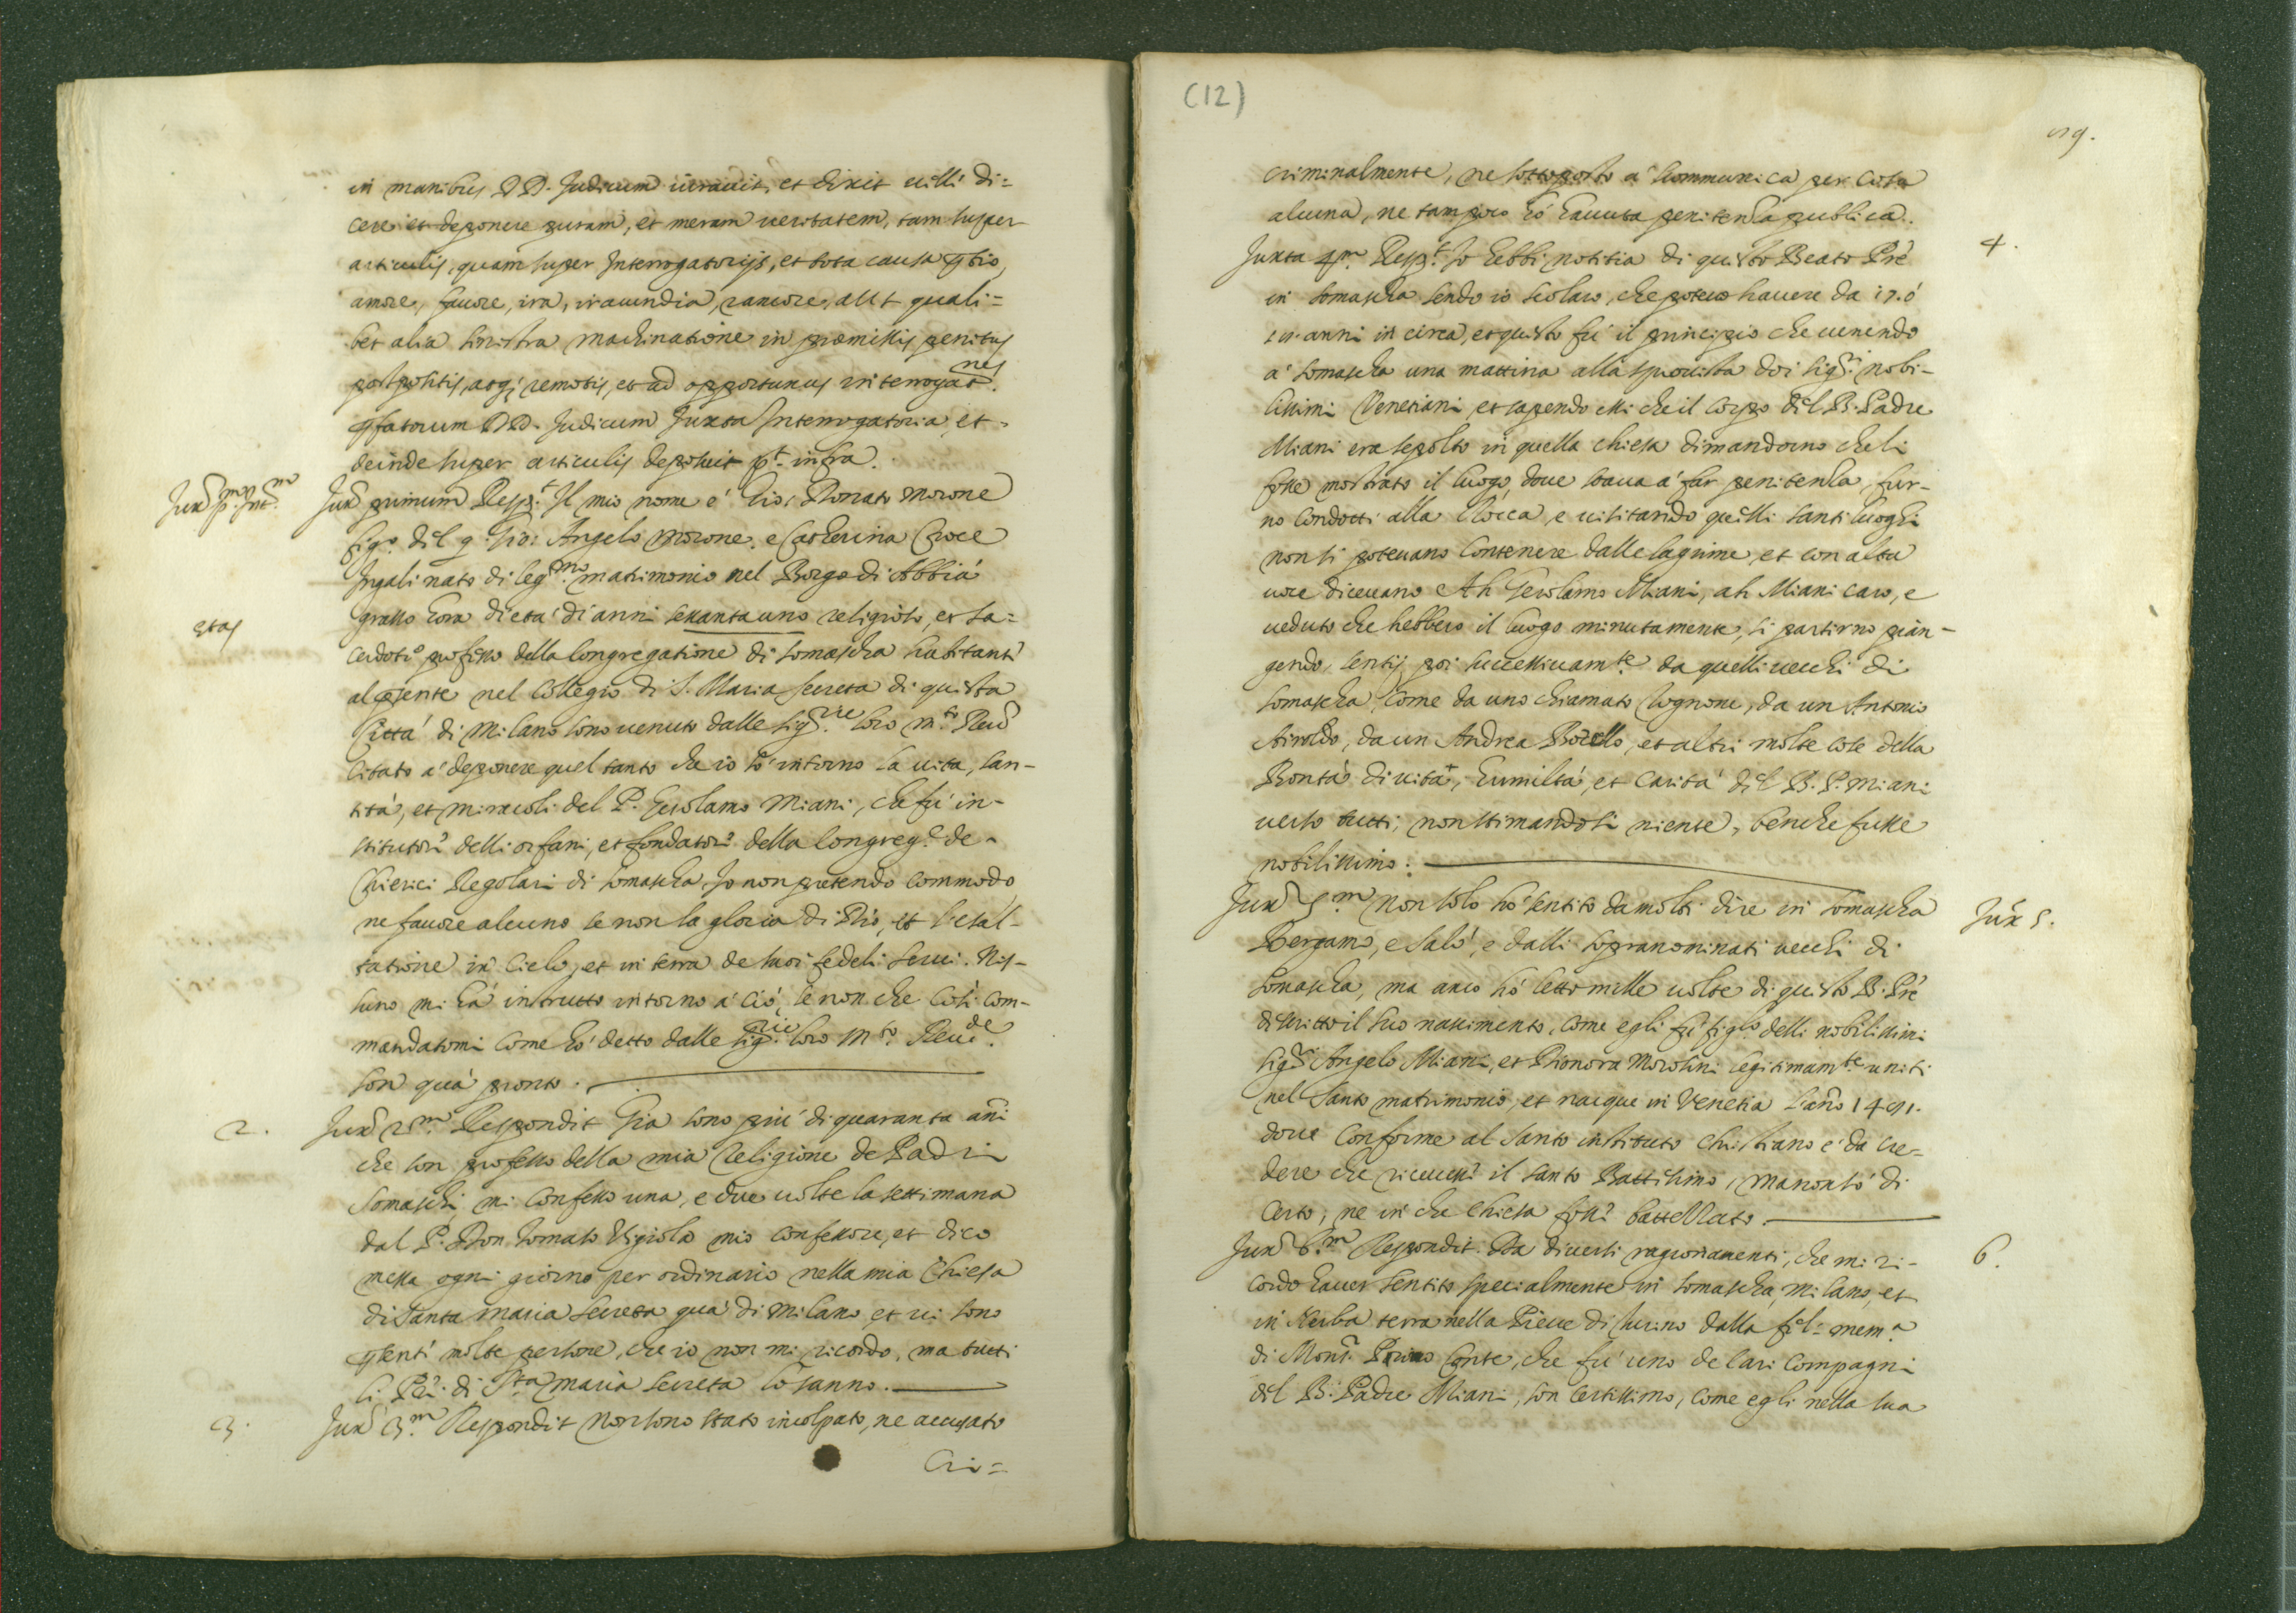 in manibus DD. Judicum iuravit, et dixit velle di=
cere et deponere puram, et meram veritatem, tam super
articulis, quam super Interrogatorijs, et tota causa odio,
amore, favore, ira, iracundia, rancore, aut quali=
bet alia sinistra machinatione in præmissis penitus
postpositis, atq; remotis, et ad opportunas interrogat.nes
pfatorum DD. Judicum Juxta Interrogatoria, et
deinde super articulis deposuit pt. infra.
Jux. p.m Int.m
Jux. primum Resp.t Il mio nome é Gio: Donato Morone
fig.o del q. Gio: Angelo Morone, e Catherina Croce
Jugali nato di leg.mo matrimonio nel Borgo di Abbià
etas
grasso hora di età di anni sessanta uno religioso, et sa=
cerdote professo della Congregatione di Somascha habitante
al psente nel Collegio di S. Maria secreta di questa
Città di Milano sono venuto dalle Sig.rie loro m.to Reu.
Citato à deponere quel tanto che io sò intorno la vita, san-
tità, et miracoli del P. Gerolamo Miani, che fù in-
stitutore delli orfani, et fondatore della Congreg.e de
Chierici Regolari di Somascha, Io non pretendo commodo,
ne favore alcuno se non la gloria di Dio, et l'esal-
tatione in Cielo, et in terra de suoi fedeli servi. Nis-
suno mi hà instrutto intorno à ciò, se non che così com-
mandatomi come hò detto dalle Sig.rie loro m.to Reu.de
son quà pronto.
2.
Jux. 2.m Respondit Gia sono più di quaranta anni
che son professo della mia Religione de Padri
Somaschi, mi confesso una, e due volte la settimana
dal P. Don Tomaso mio confessore, et dico
messa ogni giorno per ordinario nella mia Chiesa
di Santa Maria Secreta quà di Milano, et vi sono
psenti molte persone, che io non mi ricordo, ma tutti
li PP. di S.ta Maria Secreta lo sanno.
3.
Jux. 3.m Respondit Non sono stato incolpato, ne accusato
Cri=
(12)
criminalmente, ne sottoposto à scommunica per cosa
alcuna, ne tampoco hò havuta penitenza publica.
4.
Juxta 4.m Resp.t Io hebbi notitia di questo Beato Pre
in Somascha sendo io scolaro, che potevo havere da 17. ò
anni in circa, et questo fù il principio che venendo
à Somascha una mattina alla sprovista doi Sig.ri nobi-
lissimi Venetiani, et sapendo essi che il corpo del B. Padre
Miani era sepolto in quella Chiesa dimandorno che li
fosse mostrato il luogo, dove stava à far penitenza, fur-
no condotti alla Rocca, e visitando quelli santi luoghi
non si potevano contenere dalle lagrime, et con alta
voce dicevano Ah Gerolamo Miani, ah Miani caro, e
veduto che hebbero il luogo minutamente, si partirno pian-
gendo, sentij poi successivam.te da quelli vecchi di
Somascha, come da uno chiamato Cognone, da un Antonio
Airoldo, da un Andrea Bozello, et altri molte cose della
Bontà di vita, humiltà, et carità del B. P. Miani
verso tutti, non stimandosi niente, benche fusse
nobilissimo.
Jux. 5.
Jux. 5.m Non solo hò sentito da molti dire in Somascha
Bergamo, e Salò, e dalli sopranominati vecchi di
Somascha, ma anco hò letto mille volte di questo B. Pre
descritto il suo nascimento, come egli fù fig.lo delli nobilissimi
Sig.ri Angelo Miani, et Dionora Morosini legitimam.te uniti
nel Santo matrimonio, et nacque in Venetia l'anno 1481.
dove conforme al Santo instituto Christiano é da cre=
dere che ricevesse il Santo Battesimo, ma non sò di
certo, ne in che Chiesa fosse battezzato.
6.
Jux. 6.m Respondit. Da diversi ragionamenti, che mi ri-
cordo haver sentito specialmente in Somascha, Milano, et
in terra nella Pieve di dalla fel. mem.a
di Mons.r Primo Conte, che fù uno de cari compagni
del B. Padre Miani, son certissimo, come egli nella sua